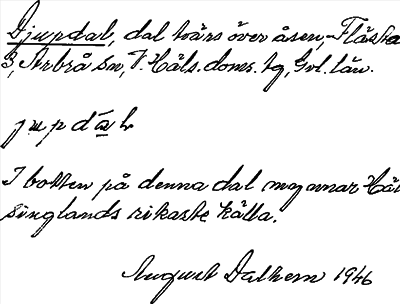 Djupdal, dal tvärs över åsen, Flästa
3, Arbrå sn, V. Häls. doms. tg, Gvl. län.
jupdaL
I botten på denna dal mynnar Häl
singlands rikaste källa.
August Dalhem 1946